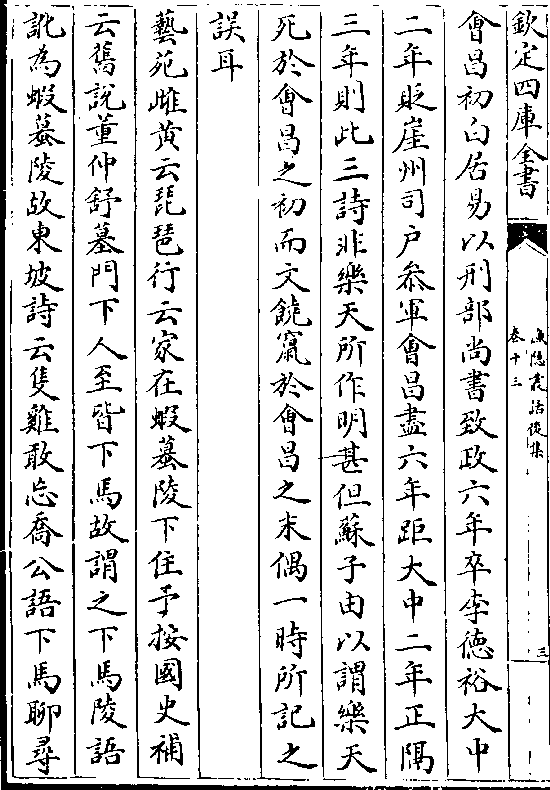 欽定四庫全書
漁隱叢話後集
卷十三
三
會昌初白居易以刑部尚書致政六年卒李徳裕大中
二年貶崖州司户叅軍會昌盡六年距大中二年正隔
三年則此三詩非樂天所作明甚但蘇子由以謂樂天
死於會昌之初而文饒竄於會昌之末偶一時所記之
誤耳
藝苑雌黄云琵琶行云家在蝦蟇陵下住予按國史補
云舊說董仲舒墓門下人至皆下馬故謂之下馬陵語
訛為蝦蟇陵故東坡詩云隻雞敢忘喬公語下馬聊尋